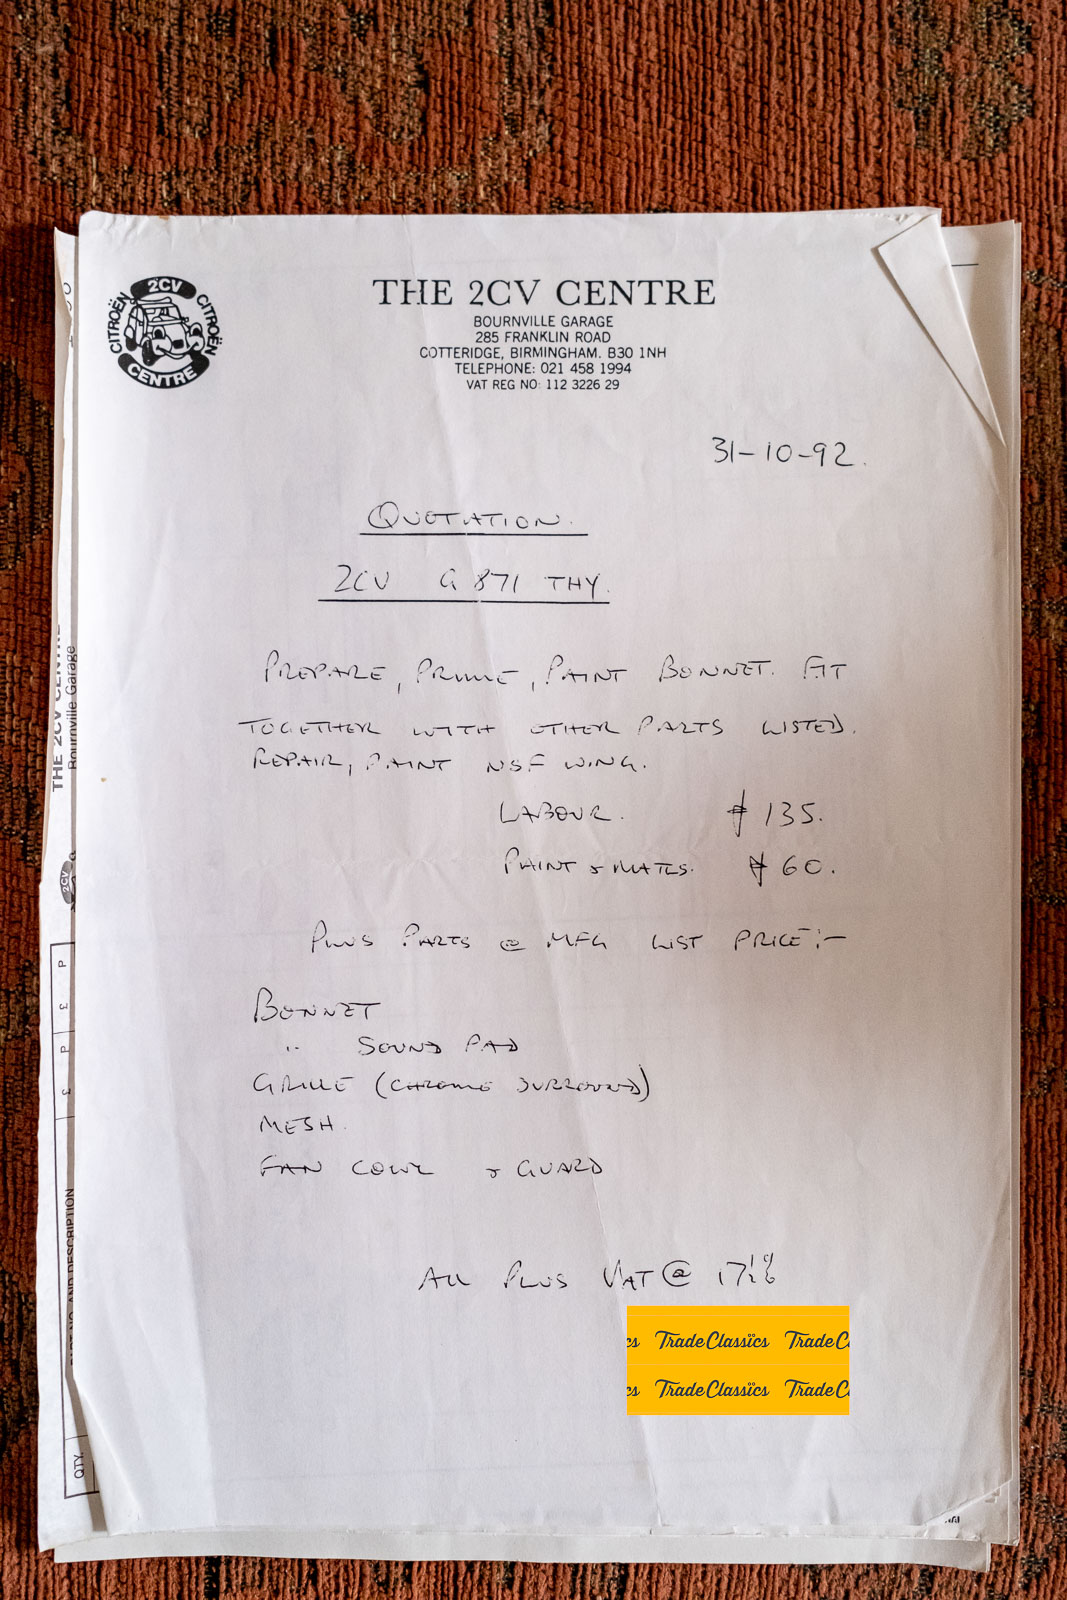 2CV
CITROËN CITROËN
CENTRE
THE 2CV CENTRE
BOURNVILLE GARAGE
285 FRANKLIN ROAD
COTTERIDGE, BIRMINGHAM. B30 1NH
TELEPHONE: 021 458 1994
VAT REG NO: 112 3226 29
31-10-92.
QUOTATION.
2CV G 871 THY.
PREPARE, PRIME, PAINT BONNET. FIT
TOGETHER WITH OTHER PARTS LISTED.
REPAIR, PAINT NSF WING.
LABOUR. £ 135.
PAINT & MATLS. £ 60.
PLUS PARTS @ MFG LIST PRICE:-
BONNET
" SOUND PAD
GRILLE (CHROME SURROUND)
MESH.
FAN COWL & GUARD
ALL PLUS VAT @ 17½%
cs TradeClassics TradeC
cs TradeClassics TradeC
THE 2CV CENTRE
Bournville Garage
2CV
£ P £ P
QTY. PART NO. AND DESCRIPTION